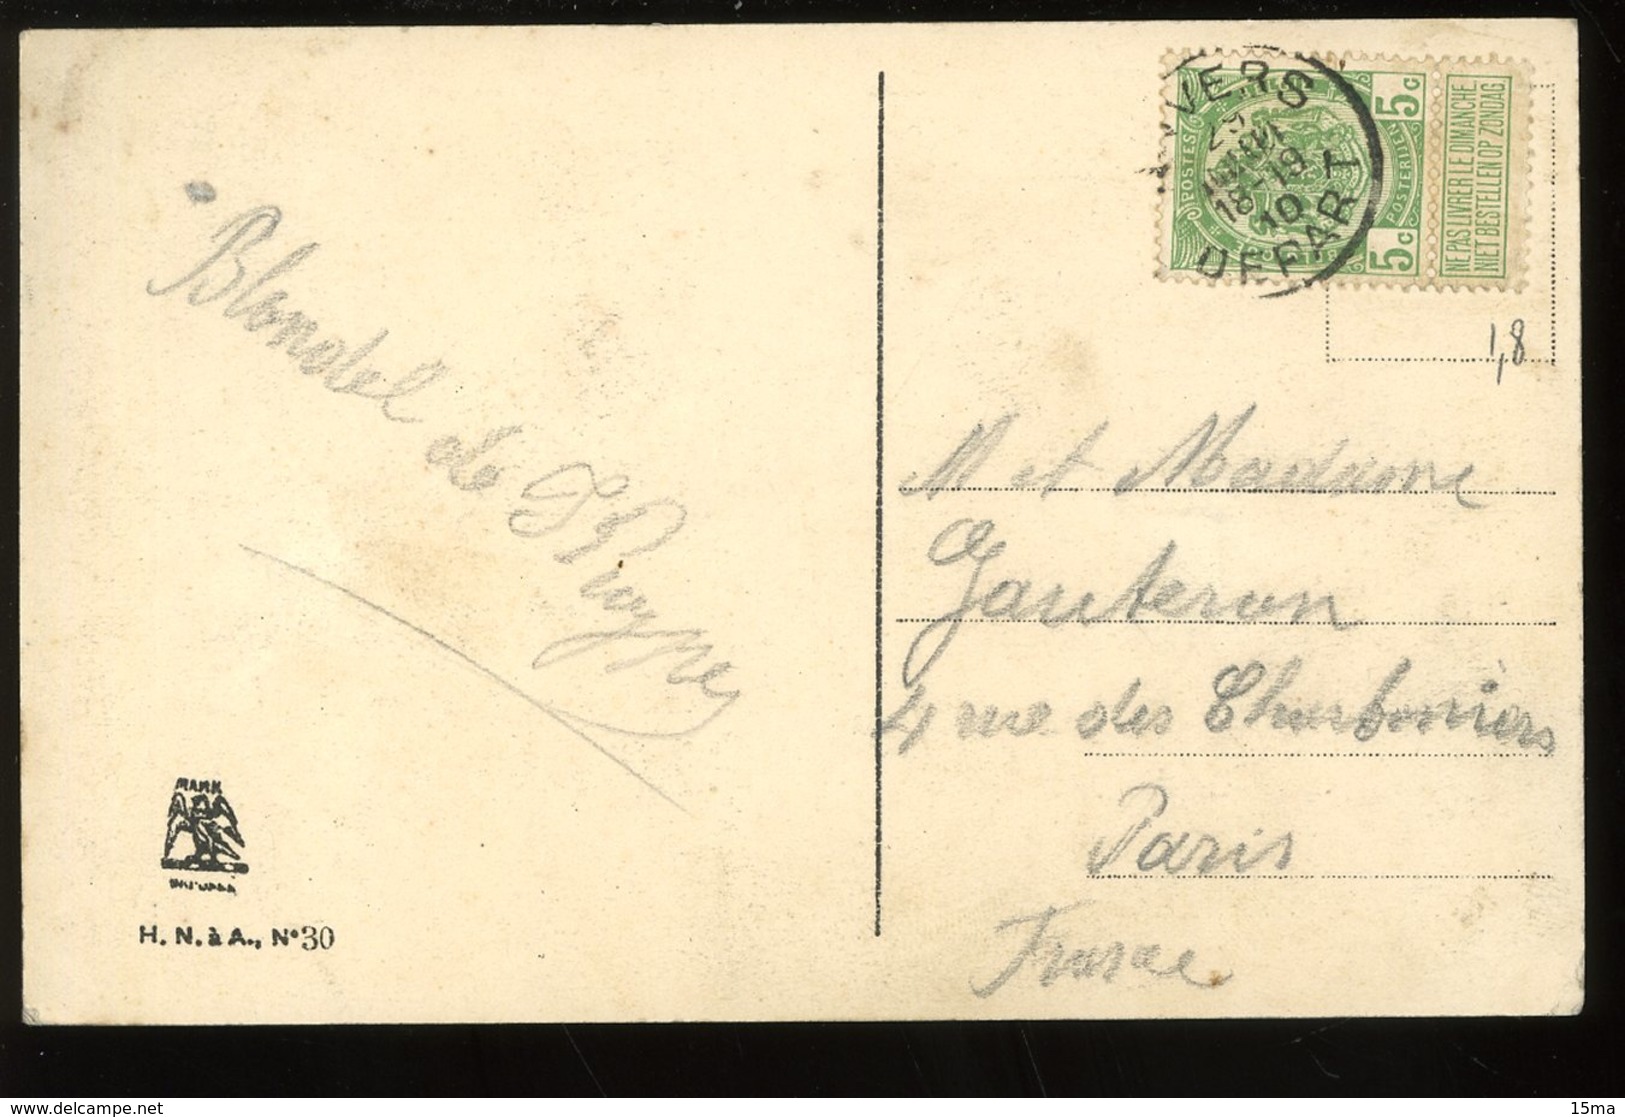 Blondel de
ANVERS
29 MARS
18-19
10
DEPART
POSTES
POSTERIJEN
5c
5c
NE PAS LIVRER LE DIMANCHE
NIET BESTELLEN OP ZONDAG
1,8
M et Madame
Gauteron
4 rue des Charboniers
Paris
France
MARK
H. N. à A., N° 30
delcampe.net
15ma